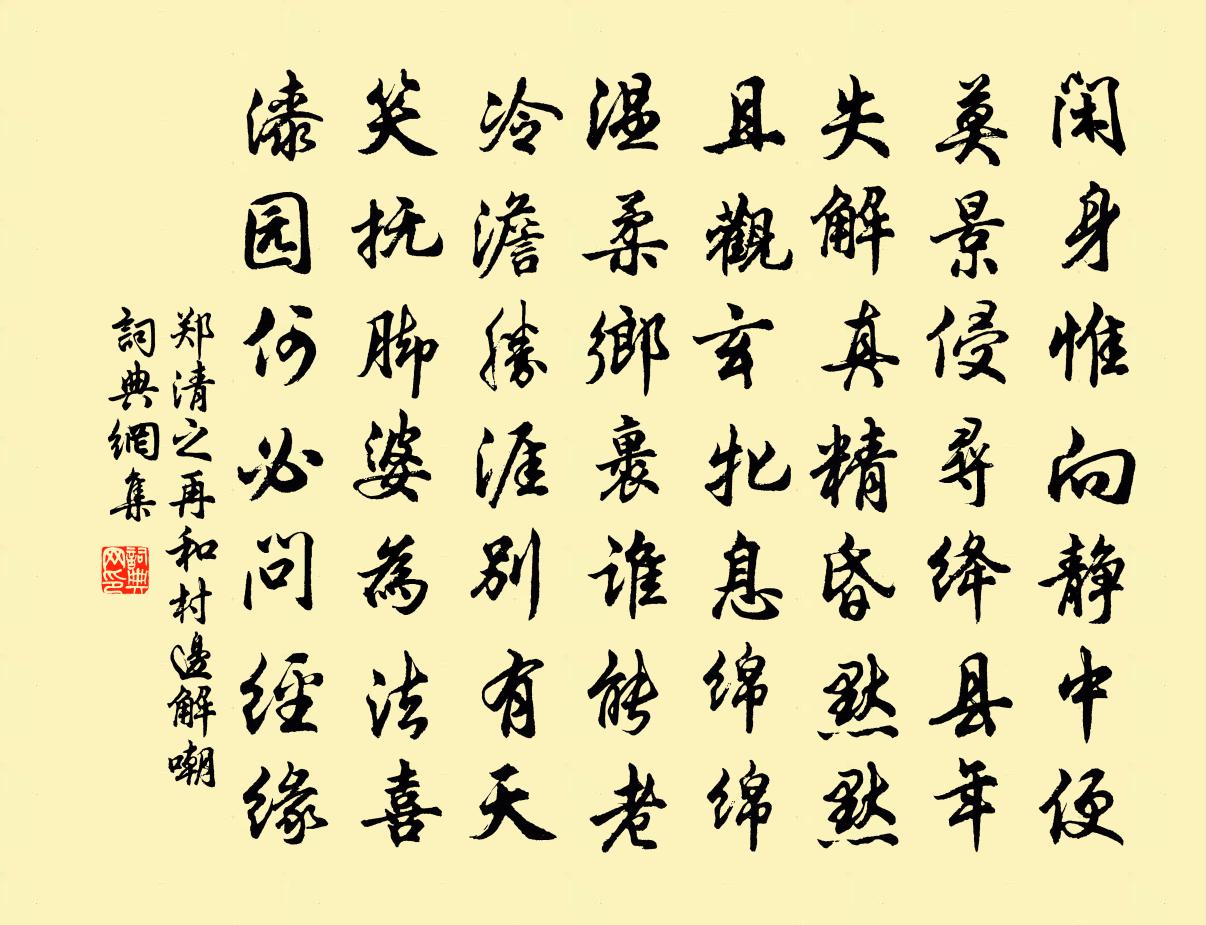 闲身惟向静中便
莫景侵尋绛县年
失解真精昏默默
且觀玄牝息绵绵
温柔鄉裹谁能老
冷澹勝涯别有天
笑抚脚婆為法喜
漆园何必问經缘
郑清之再和村邊解嘲
詞典網集
詞典网印